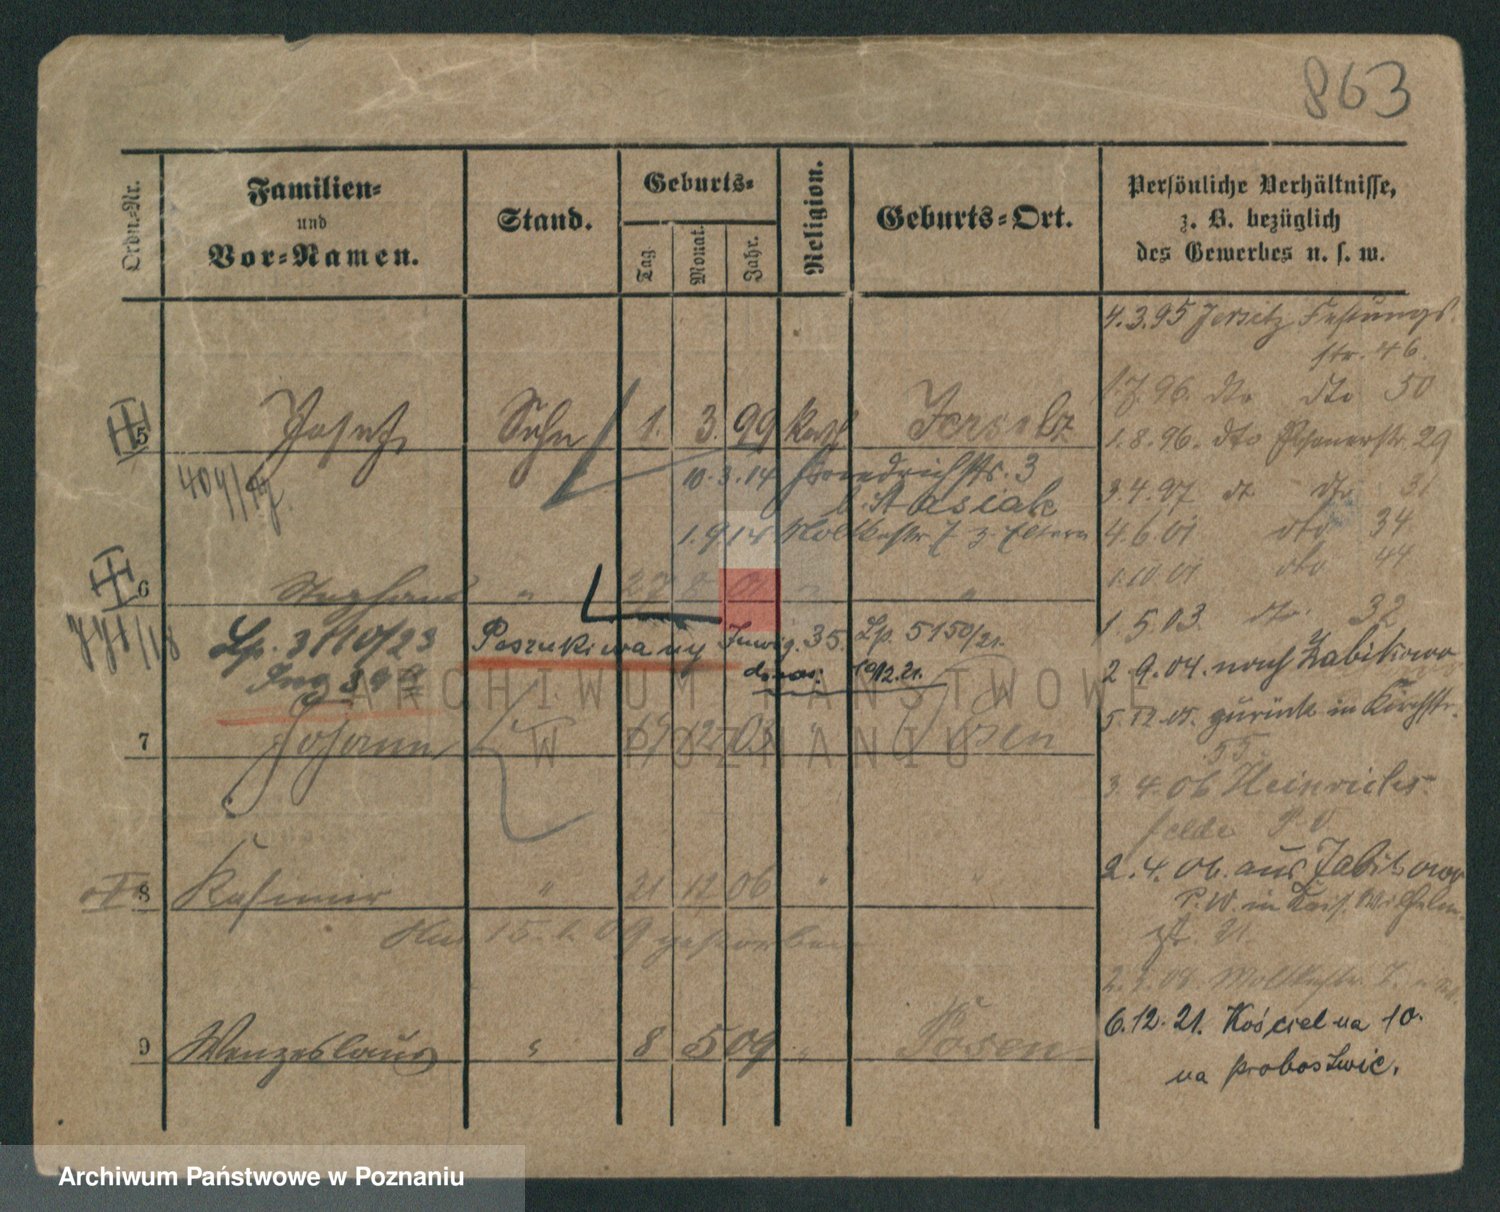 863
Ordn.-Nr.
Familien-
und
Vor-Namen.
Stand.
Geburts-
Tag
Monat.
Jahr.
Religion.
Geburts-Ort.
Persönliche Verhältnisse,
z. B. bezüglich
des Gewerbes u. s. w.
4.3.95 Jersitz Festungs
str. 46.
96. dto dto 50
1.8.96. dto Posenerstr. 29
3.4.97 dt dto 31
4.6.01 dto 34
1.10.01 dto 44
1.5.03. dto. 32
2.9.04. nach Zabikowo
5.12.05. zurück in Kirchstr.
55.
3.4.06 Heinrichs-
felde P. O
2.4.06. aus Zabikowo
P. W. in Kais. Wilhelm
str. 21.
2.3.08. Moltkestr. 7.
6.12.21. Kościelna 10.
na probostwie.
5 Josef, Sohn 1. 3. 99 kath Jersitz
10.3.14 Friedrichstr. 3
b. Stasiak
1.9.15 Moltkestr 7 z. Eltern
6 Stephan " 27 8 01 " "
Lp. 3110/23
Poszukiwany Inwig. 35. Lp. 5150/21.
10/12.21.
7 Johann 19 12 03 " Posen
8 Kasimir " 21 12 06 " "
15. 1. 09 gestorben
9 Wenzeslaus " 8 5 09 " Posen
ARCHIWUM PAŃSTWOWE
W POZNANIU
Archiwum Państwowe w Poznaniu